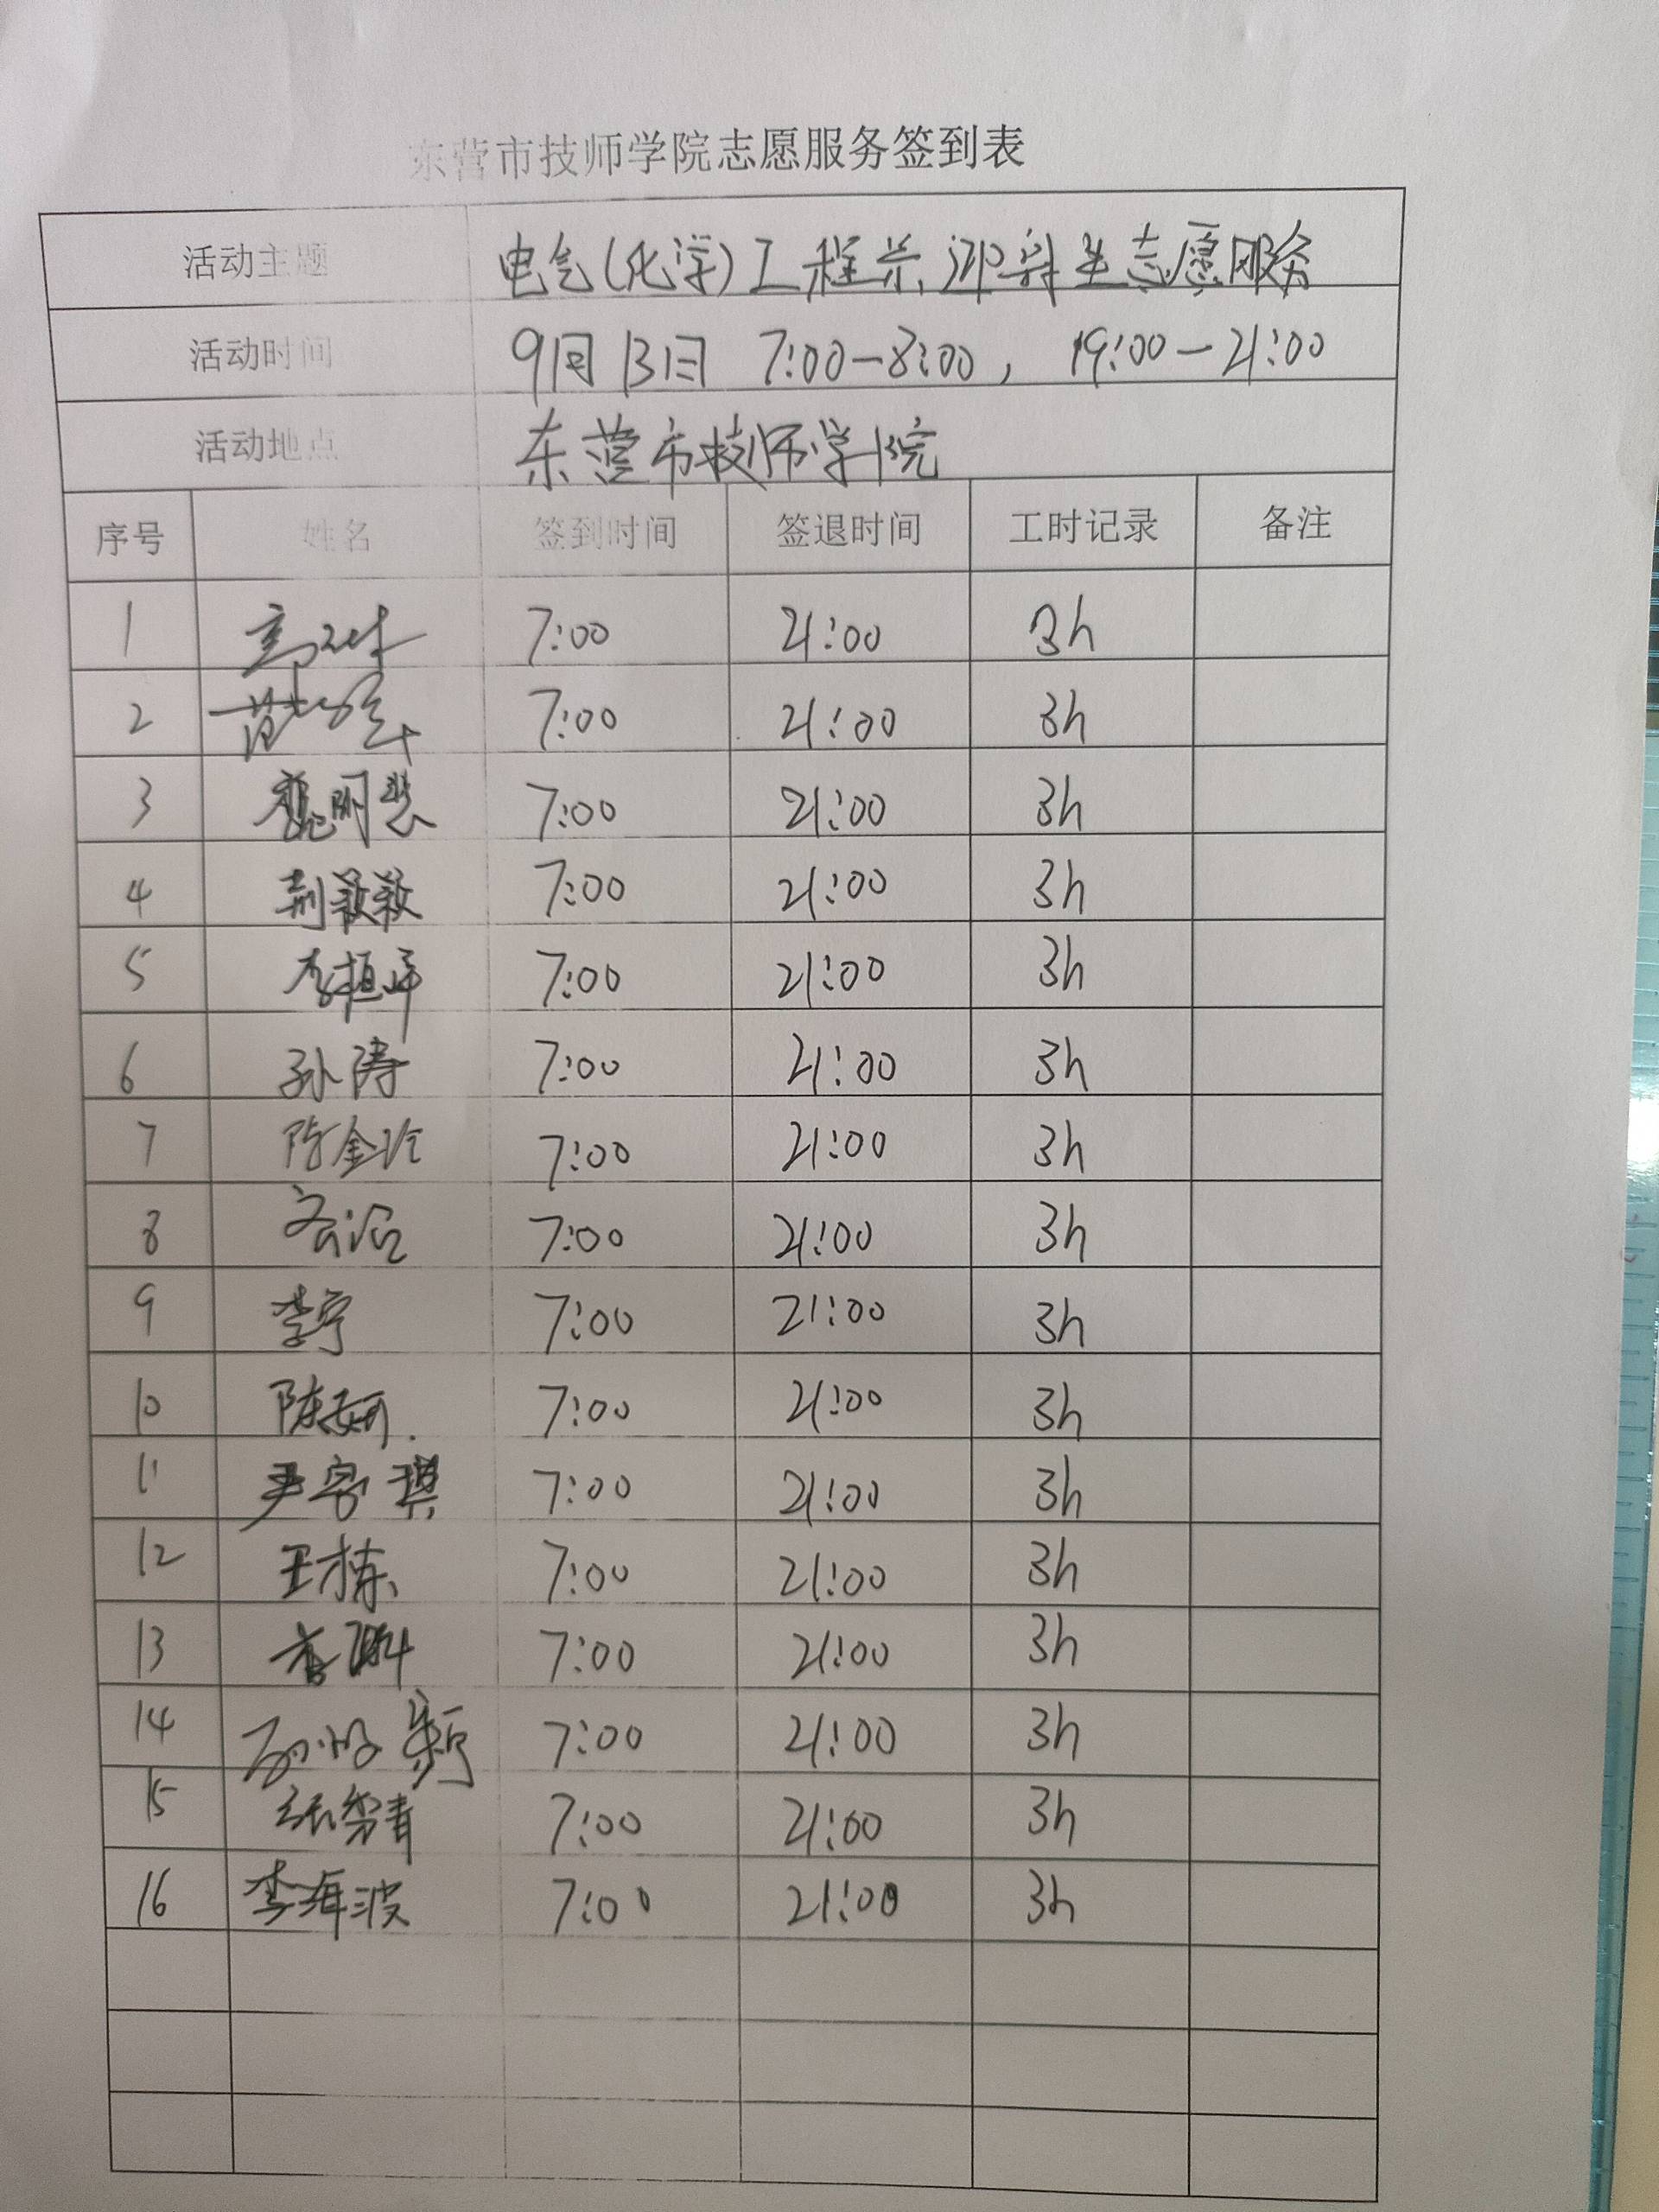 东营市技师学院志愿服务签到表
活动主题 电气(化学)工程系迎新生志愿服务
活动时间 9月13日 7:00-8:00, 19:00-21:00
活动地点 东营市技师学院
序号 姓名 签到时间 签退时间 工时记录 备注
1 7:00 21:00 3h
2 7:00 21:00 3h
3 7:00 21:00 3h
4 荆毅毅 7:00 21:00 3h
5 李桓宇 7:00 21:00 3h
6 孙涛 7:00 21:00 3h
7 陈金玲 7:00 21:00 3h
8 7:00 21:00 3h
9 李宁 7:00 21:00 3h
10 陈妍. 7:00 21:00 3h
11 尹客琪 7:00 21:00 3h
12 王栋 7:00 21:00 3h
13 7:00 21:00 3h
14 7:00 21:00 3h
15 7:00 21:00 3h
16 李海波 7:00 21:00 3h